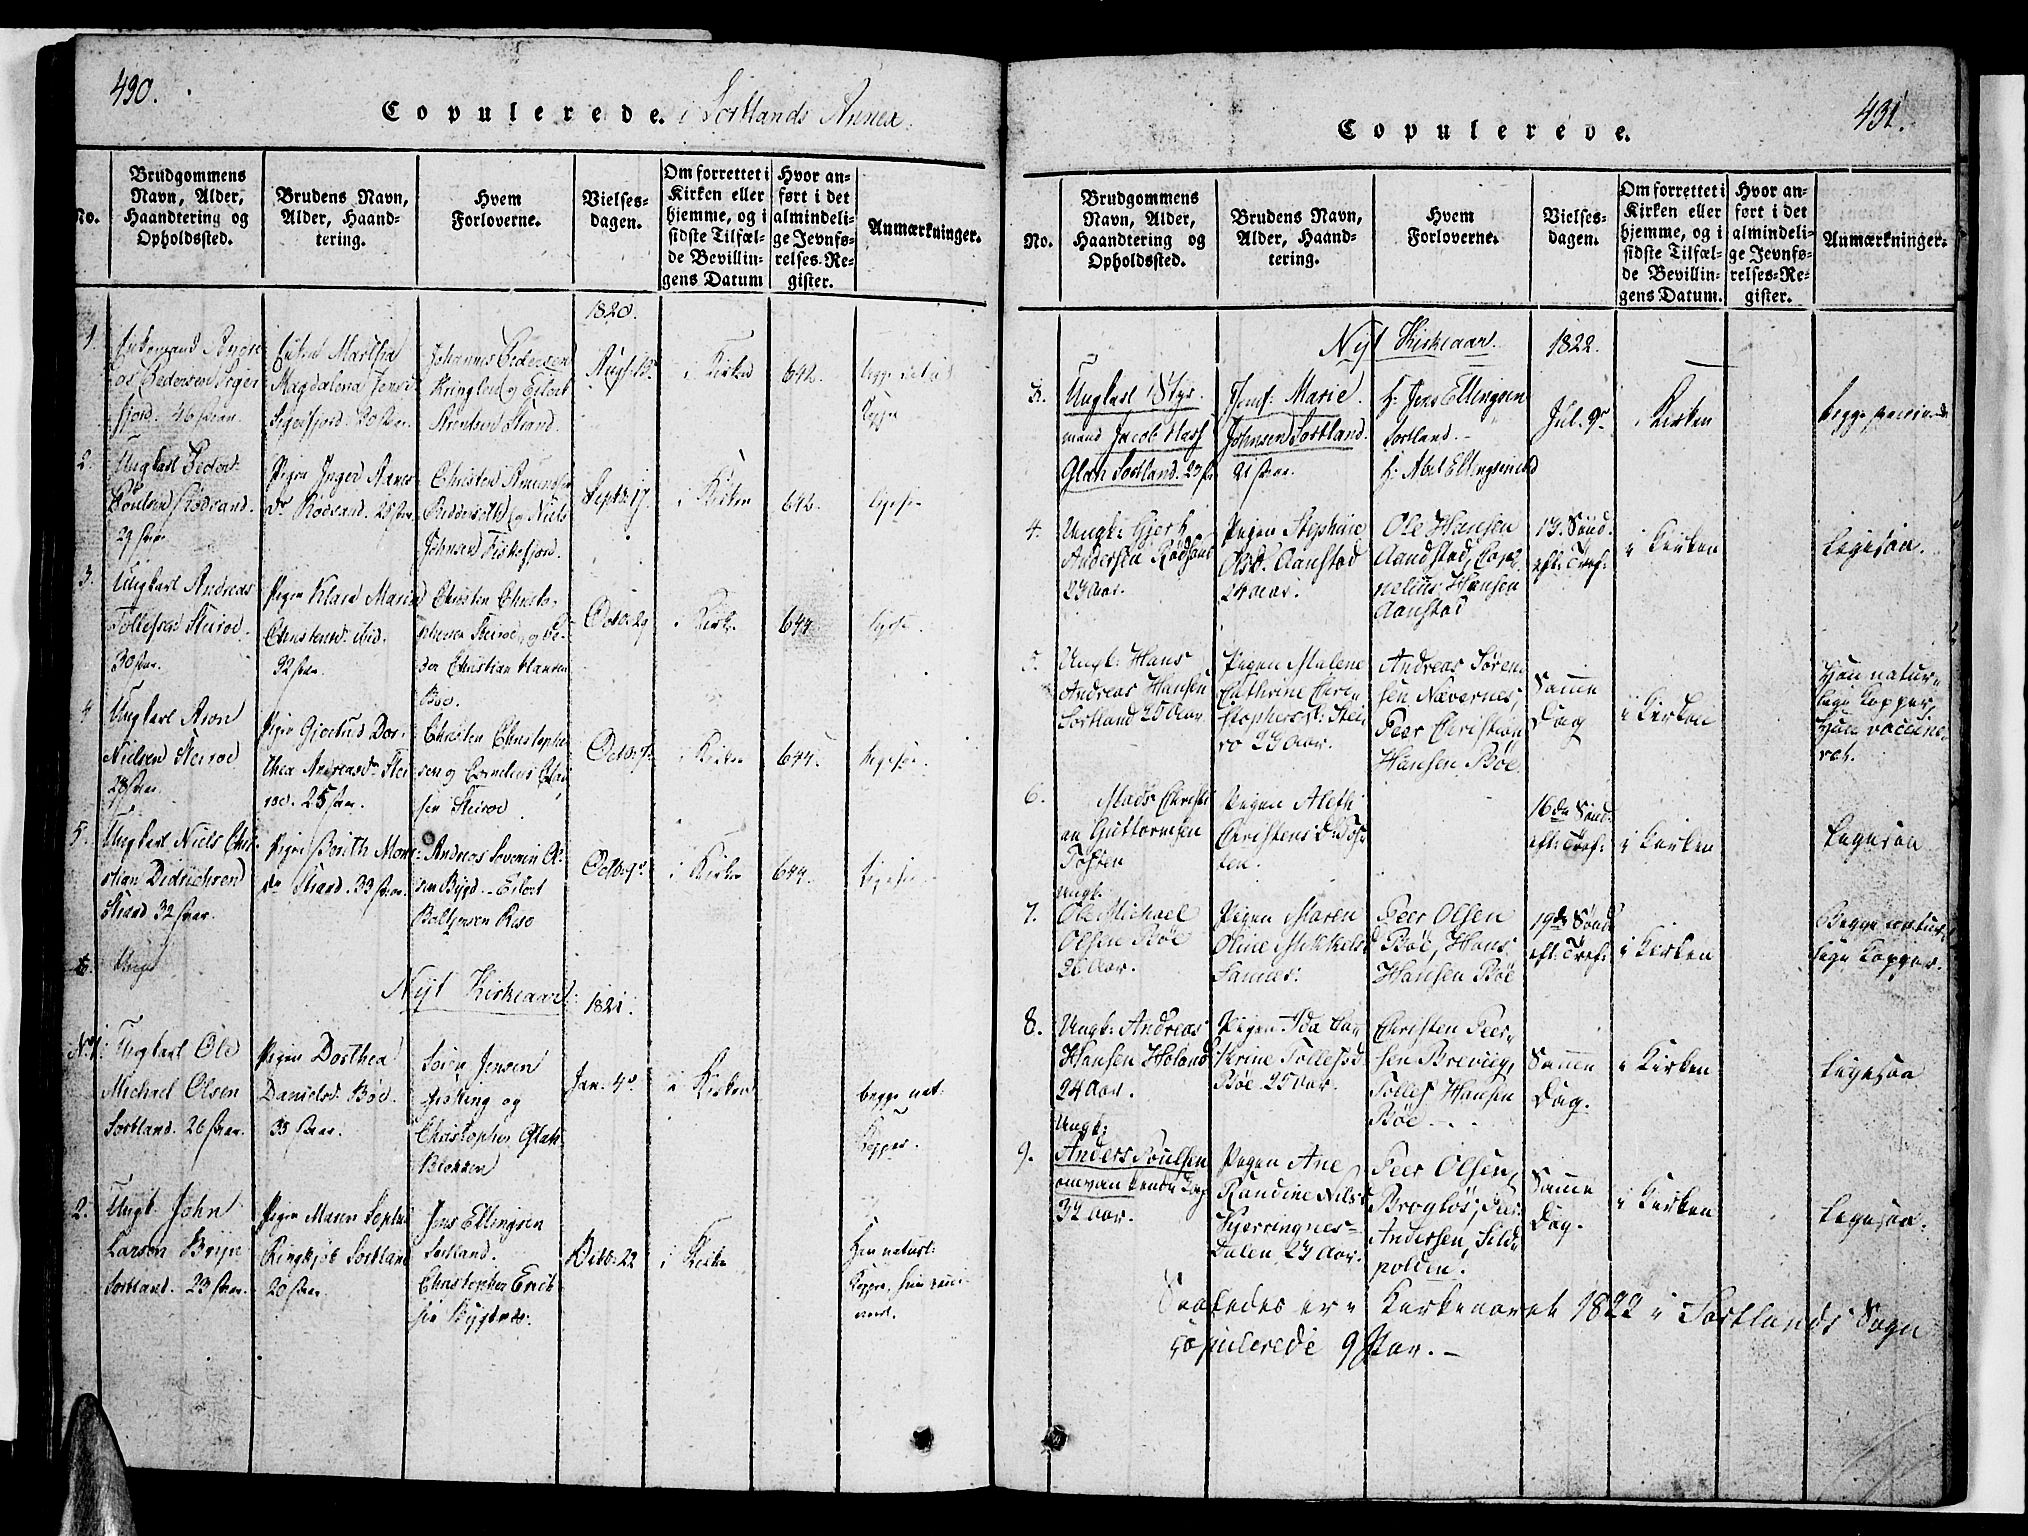 490.
Copulerede. i Sortlands Annex.
No.
Brudgommens Navn, Alder, Haandtering og Opholdssted.
Brudens Navn, Alder, Haandtering.
Hvem Forloverne.
Vielsesdagen.
Om forrettet i Kirken eller hjemme, og i sidste Tilfælde Bevillingens Datum
Hvor anført i det almindelige Jevnførelses-Register.
Anmærkninger.
1820.
1.
Enkemand
Pedersen Seger
fjord. 46 Aar.
Martha
Magdalena Jens
Segefjord. 30 Aar.
Johannes Pedersen
Kringlen og Eilert
Strand.
Aug: 13
i Kirken
642.
2.
Ungkarl Peder
Poulsen Rødsand.
29 Aar
Pigen Inger
Rødsand. 25 Aar.
Christen Amundsen
og Niels
Johnsen Fiskefjord.
Septb: 17.
i Kirken
642.
3.
Ungkarl Andreas
Tollefsen Steiroe
30 Aar.
Pigen Klara Maria
Christensd. ibid.
32 Aar.
Christen Christo-
phersen Steiroe, og Pe-
der Christian Hansen
Boe.
Octb: 29
i Kirken
644.
4
Ungkarl Aron
Nielsen Steiroe
28 Aar.
Pigen Gjertrud Dor-
thea Andreasdr Stei-
roe. 25 Aar.
Christen Christopher
sen og Cornelius
sen Steiroe.
Octb:
i Kirken
644.
5.
Ungkarl Niels Chri-
stian Didrichsen
Strand 32 Aar.
Pigen Berith Mons
dr Strand. 33 Aar.
Andreas Severin Ol-
sen Bygd. Eilert
Baltzersen Riso
Octb:
i Kirken
644.
6
Ung
Nyt Kirkeaar: 1821.
No 1.
Ungkarl Ole
Michael Olsen
Sortland. 26 Aar.
Pigen Dorthea
Danielsd. Böe.
35 Aar.
Sören Jensen
Fisking og
Christopher
Blokken
Jan. 4de
i Kirken
begge nat:
Kopper.
2.
Ungk. John
Larsen
Sortland. 23 Aar.
Pigen Maren Sophia
Ringkjöb Sortland
20 Aar
Jens Ellingsen
Sortland.
Christopher Erik-
sen Bygtnes.
Octb: 22
i Kirken
naturl:
Kopper,
431.
Copulerede.
No.
Brudgommens Navn, Alder, Haandtering og Opholdssted.
Brudens Navn, Alder, Haandtering.
Hvem Forloverne.
Vielsesdagen.
Om forrettet i Kirken eller hjemme, og i sidste Tilfælde Bevillingens Datum.
Hvor anført i det almindelige Jevnførelses-Register.
Anmærkninger.
Nyt Kirkeaar 1822.
3.
Ungkarl Styr
mand Jacob
Glad Sortland. 27
Jomf: Marie
Johnsen Sortland.
21 Aar.
H: Jens Ellingsen
Sortland.
H: Abel Ellingsen ibid
Jul. 9de
i Kirken
begge
4.
Ungk: Gjert
Andersen Rødsand
23 Aar.
Pigen Stephine
Olsd. Aanstad
24 Aar.
Ole Hansen
Aandstad, Cor-
nelius Hansen
Aanstad
13. Sönd.
eft: Tref:
i Kirken
Ligesaa.
5.
Ungk: Hans
Andreas Hansen
Sortland 25 Aar.
Pigen Malene
Cathrine Chri-
stophersd: Stei-
ro 23 Aar.
Andreas Sören-
sen Nævernes,
Peer Christian
Hansen Böe.
Samme
Dag
i Kirken
Han natur-
lige Kopper,
Hun vaccine-
ret.
6.
Mads Christi
an Guttormsen
Toften
Ungk.
Pigen Aleth
Christensd. Tof-
ten.
16de Sönd
eft: Tref:
i Kirken
Ligesaa
7.
Ole Michael
Olsen Böe
36 Aar.
Pigen Maren
Oline Mikkelsd
Sammes:
Peer Olsen
Böe, Hans
Hansen Böe
19de Sönd
eft: Tref:
i Kirken
Begge natur-
lige Kopper.
8.
Ungk: Andreas
Hansen Holand
24 Aar.
Ungk:
Pigen Ida Ca-
thrine Tollefsd
Böe 25 Aar.
Christen Peer-
sen Breviig,
Tollef Hansen
Böe
Samme
Dag.
i Kirken
Ligesaa
9.
Anders Poulsen
omvankende Lap
32 Aar.
Pigen Ane
Randine Nilsd.
Kjerringnes-
Dalen 23 Aar.
Peer Olsen
Brogløs, Peer
Andersen, Sild-
polden.
Samme
Dag.
i Kirken
Ligesaa.
Saaledes er i Kirkeaaret 1822 i Sortlands Sogn
copulerede 9 Par.